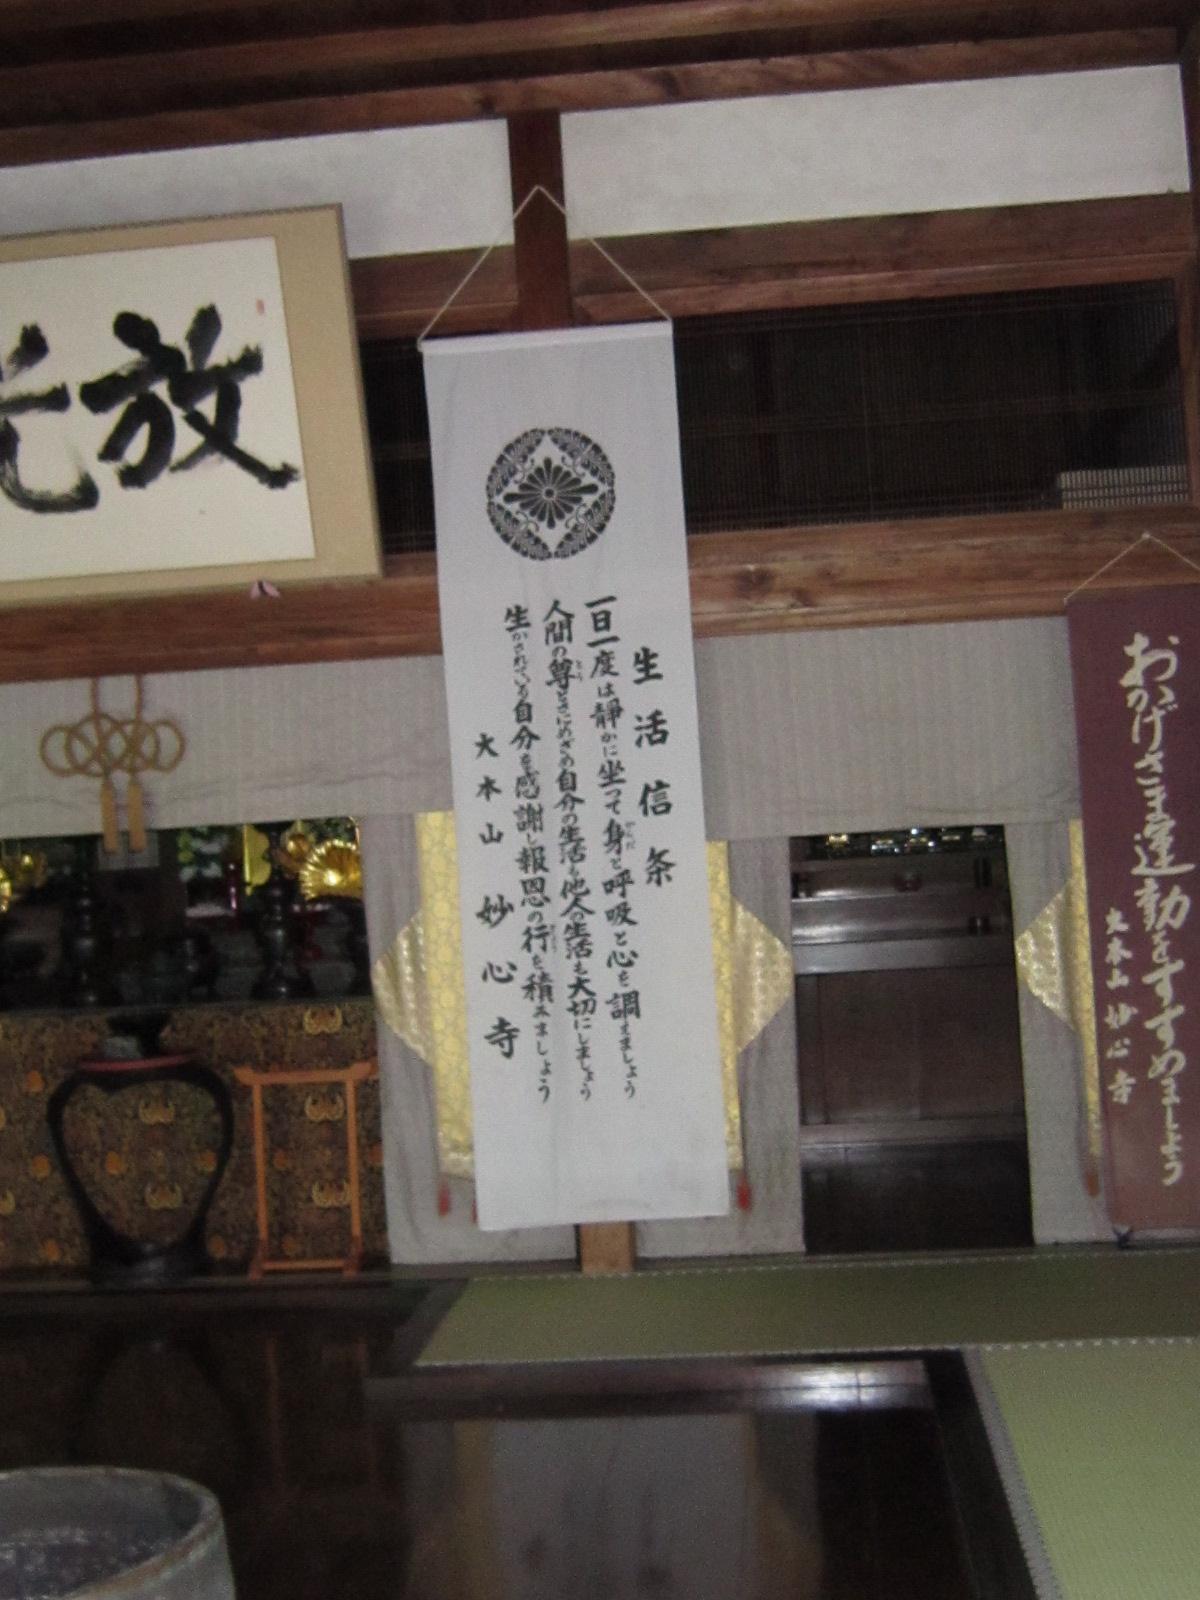 放光
生活信条
一日一度は静かに坐って身と呼吸と心を調えましょう
人間の尊とさにめざめ自分の生活も他人の生活も大切にしましょう
生かされている自分を感謝し報恩の行を積みましょう
大本山 妙心寺
おかげさま運動をすすめましょう
大本山 妙心寺